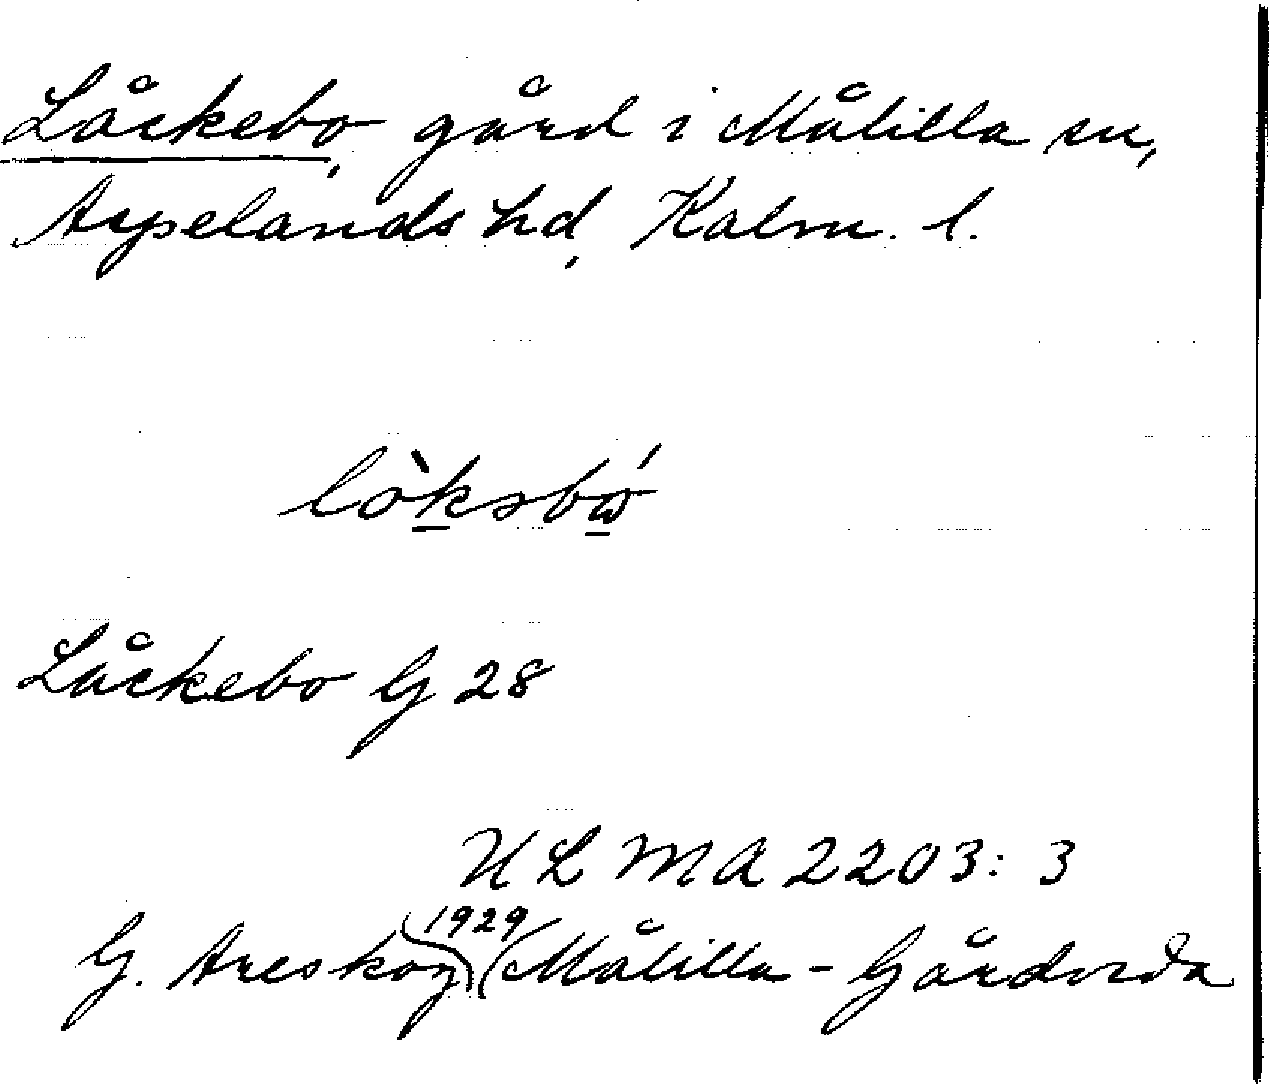 Låckebo, gård i Målilla sn,
Aspelands hd, Kalm. l.
Låckebo G 28
ULMA 2203: 3
1929
G. Areskog (Målilla - Gårdveda